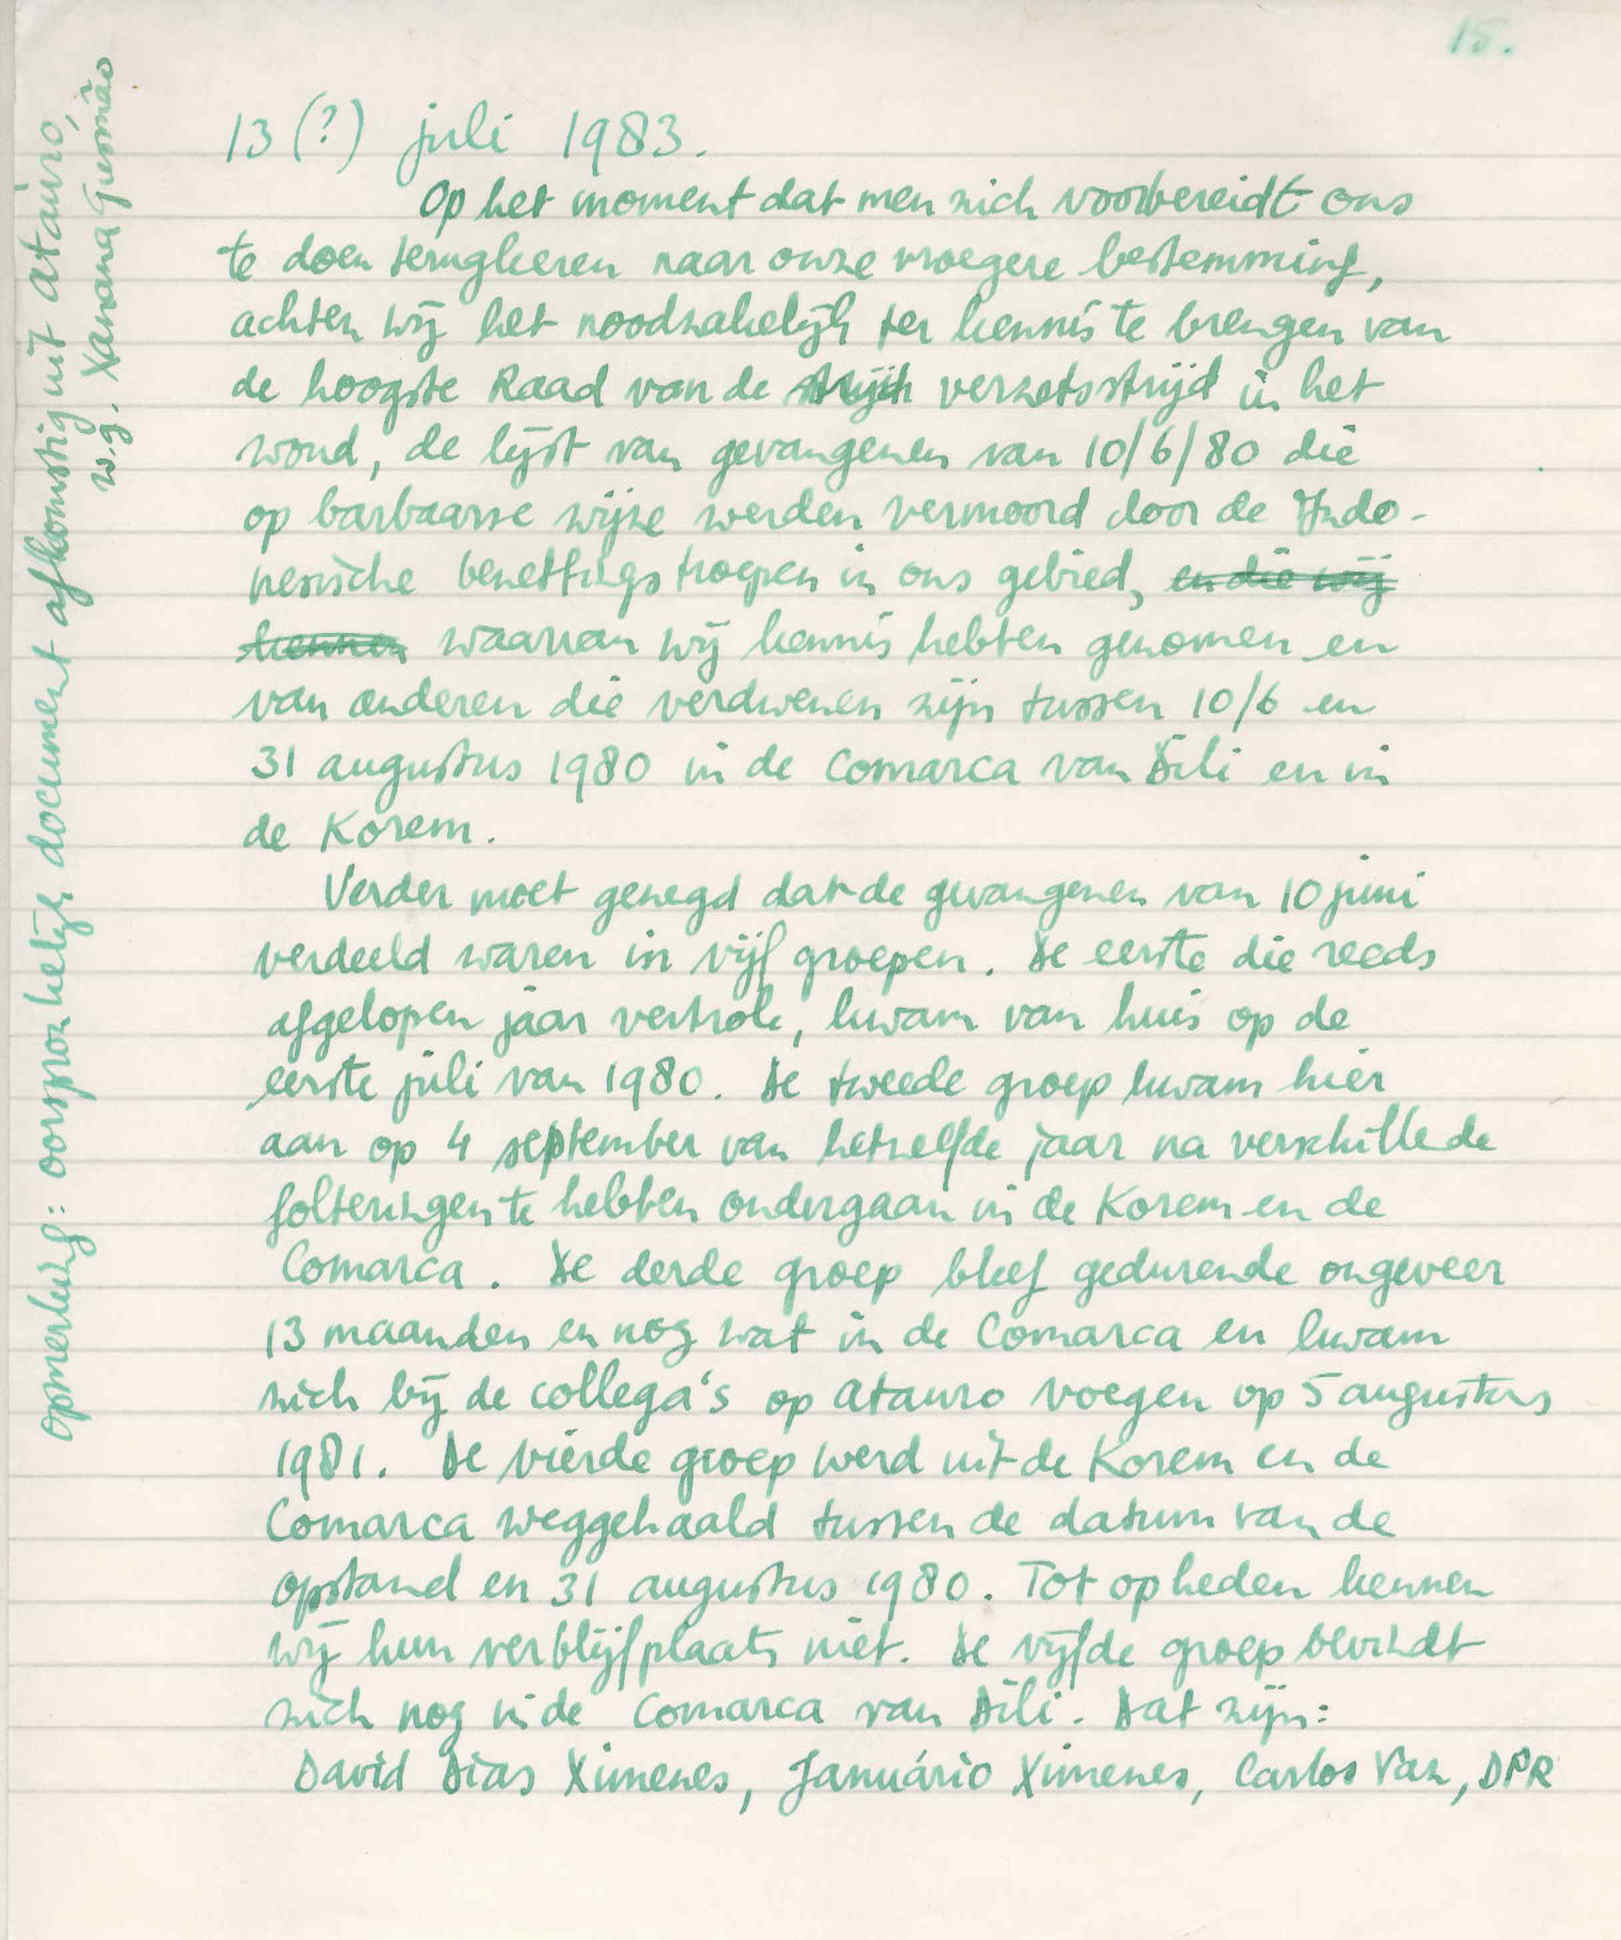 15.
13 (?) juli 1983.
Op het moment dat men zich voorbereidt ons
te doen terugkeren naar onze vroegere bestemming,
achten wij het noodzakelijk ter kennis te brengen van
de hoogste Raad van de strijd verzetsstrijd in het
woud, de lijst van gevangenen van 10/6/80 die
op barbaarse wijze werden vermoord door de Indo-
nesische bezettingstroepen in ons gebied, en die wij
kennen waarvan wij kennis hebben genomen en
van anderen die verdwenen zijn tussen 10/6 en
31 augustus 1980 in de Comarca van Dili en in
de Korem.
Verder moet gezegd dat de gevangenen van 10 juni
verdeeld waren in vijf groepen. De eerste die reeds
afgelopen jaar vertrok, kwam van huis op de
eerste juli van 1980. De tweede groep kwam hier
aan op 4 september van hetzelfde jaar na verschillede
folteringen te hebben ondergaan in de Korem en de
Comarca. De derde groep bleef gedurende ongeveer
13 maanden en nog wat in de Comarca en kwam
zich bij de collega's op Atauro voegen op 5 augustus
1981. De vierde groep werd uit de Korem en de
Comarca weggehaald tussen de datum van de
opstand en 31 augustus 1980. Tot op heden kennen
wij hun verblijfplaats niet. De vijfde groep bevindt
zich nog in de Comarca van Dili. Dat zijn:
David Dias Ximenes, Januário Ximenes, Carlos Vaz, DPR
opmerking: oorspronkelijk document afkomstig uit Atauro,
w.g. Xanana Gusmão